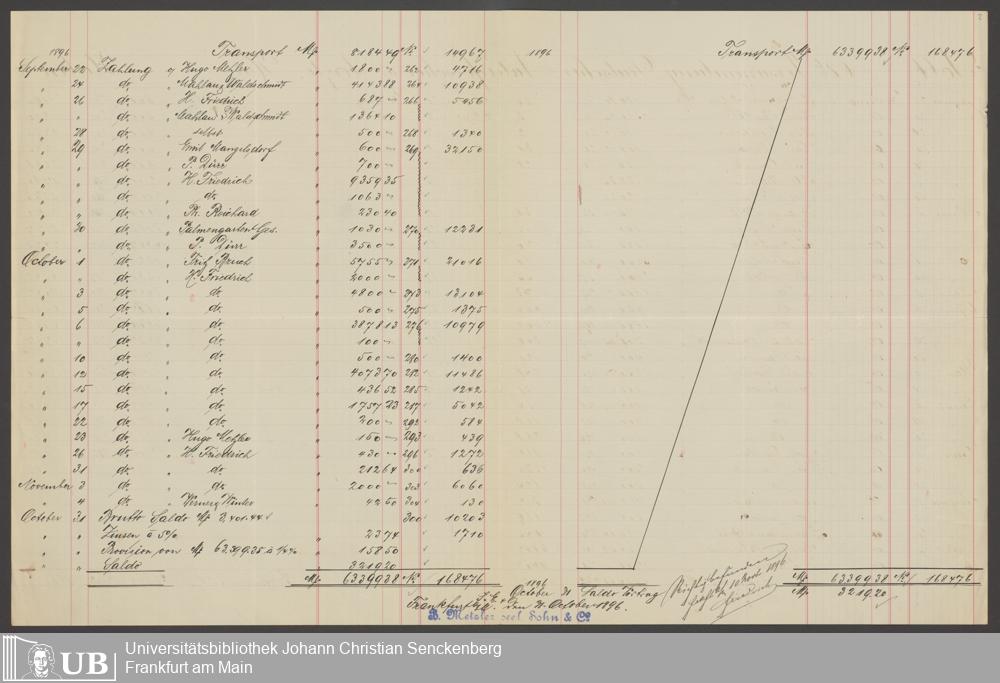 1896 Transport M. 8184 49 № 14967
September 22 Zahlung a Hugo Metzler 1800 262 4716
24 do. Mahlau & Waldschmidt 4143 88 264 10938
26 do. H. Friedrich 687 266 5456
do. Mahlau & Waldschmidt 1364 10
28 do. selbst 500 268 1340
29 do. Emil Mangelsdorf 600 269 32150
do. P. Dürr 700
do. H. Friedrich 9359 35
do. do. 1063
do. Th. Reichard 230 40
30 do. Palmengarten Ges. 1030 270 12231
do. P. Dürr 3500
October 1 do. Fritz Bruch 5755 271 21016
do. H. Friedrich 2000
3 do. do. 4800 273 13104
5 do. do. 500 275 1375
6 do. do. 3878 13 276 10979
do. do. 100
10 do. do. 500 280 1400
12 do. do. 4073 70 282 11486
15 do. do. 436 52 285 1242
17 do. do. 1757 83 287 5042
22 do. do. 200 292 584
23 do. Hugo Metzler 150 293 439
26 do. H. Friedrich 430 296 1272
31 do. do. 212 64 300 636
November 3 do. do. 2000 303 6060
4 do. Werner & Winter 42 50 304 130
October 31 Brutto Saldo M. 3,401.44 300 10203
Zinsen à 5% 23 74 1710
Provision von M. 63.399.35 à 1/4% 158 50
Saldo 3219 20
M. 63399 38 № 168476
Frankfurt a/M. den 31. October 1896.
B. Metzler seel. Sohn & Co.
1896 Transport M. 63399 38 № 168476
M. 63399 38 № 168476
1896 October 31 Saldo Vortrag M. 3219.20
Richtig befunden
Frankfurt 10 Nov. 1896
Friedrich
UB Universitätsbibliothek Johann Christian Senckenberg
Frankfurt am Main